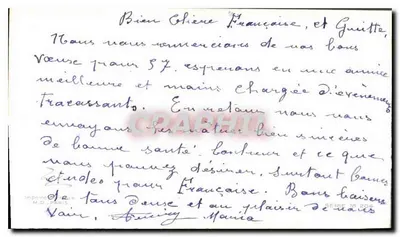 Bien Chère Françoise, et Guitte,
Nous vous remercions de vos bons
vœux pour 57, esperons en une année
meilleure et moins chargée d'évènements
tracassants. En retour nous vous
envoyons bien sincères
de bonne santé, bonheur et ce que
vous pouvez désirer, surtout bonnes
études pour Françoise. Bons baisers
de tous deux et au plaisir de vous
voir. Maria